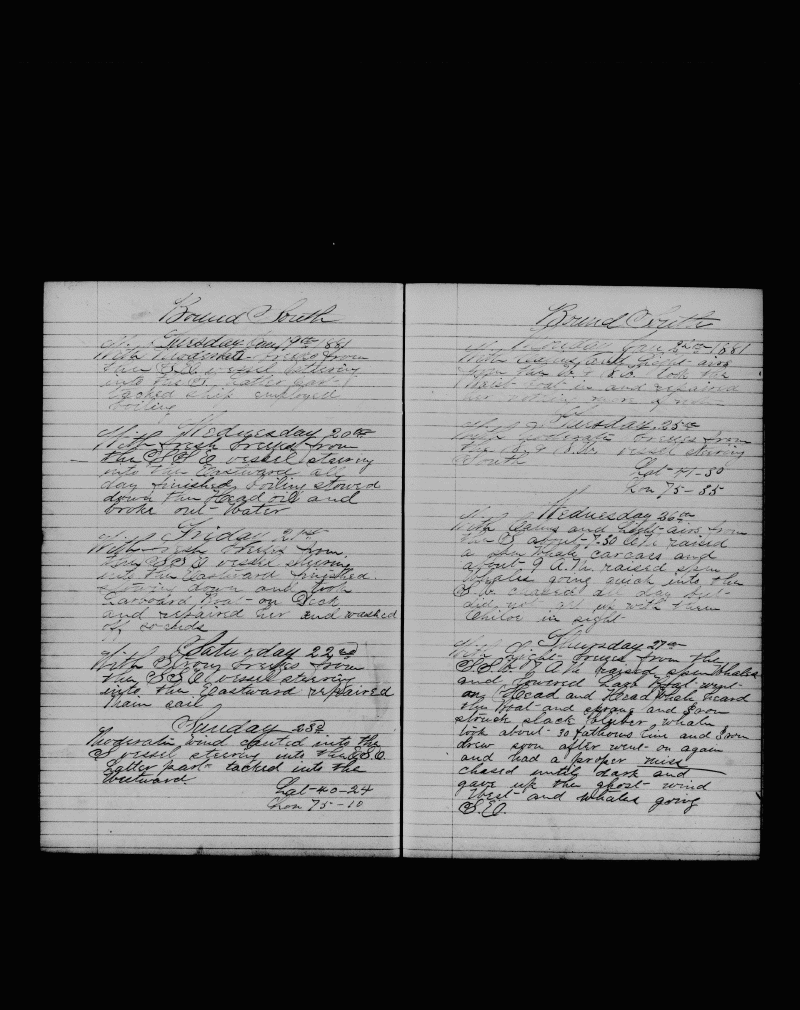 Bound South
Tuesday Jan 19th 1881
With Moderate breeze from
the S.S.E vessel steering
into the S. Latter part
tacked ship employed
boiling
Wednesday 20th
With fresh breezes from
the S.S.E vessel steering
into the Eastward all
day finished boiling stowed
down the Head oil and
broke out water
Friday 21st
With fresh breeze from
the S.S.E vessel steering
into the Eastward finished
down and took
Larboard Boat on Deck
and repaired her and washed
off
Saturday 22nd
With Strong breezes from
the S.S.E vessel steering
into the Eastward repaired
Main sail
Sunday 23d
Moderate wind canted into the
S vessel steering into the E.S.E.
Latter part tacked into the
Westward
Lat 40-24
Lon 75-10
Bound South
Jan 1881
With and light airs
from the took the
Waist boat in and repaired
her nothing more of note
Tuesday 25th
With moderate breezes from
the vessel steering
South
Lat 41-50
Lon 75-85
Wednesday 26th
With Calms and light airs from
the S about 7-30 A.M. raised
a sperm whale carcass and
about 9 A.M. raised sperm
Whales going quick into the
chased all day but
did not get up with them
Chiloe in sight
Thursday 27th
With light breeze from the
A.M raised sperm whales
and Lowered Larb Boat went
on Head and Head Whale heard
the boat and sprung and Iron
struck slack blubber whale
took about 30 fathoms line and Iron
drew soon after went on again
and had a proper miss
chased until dark and
gave up the ghost wind
West and whales going
S.E.